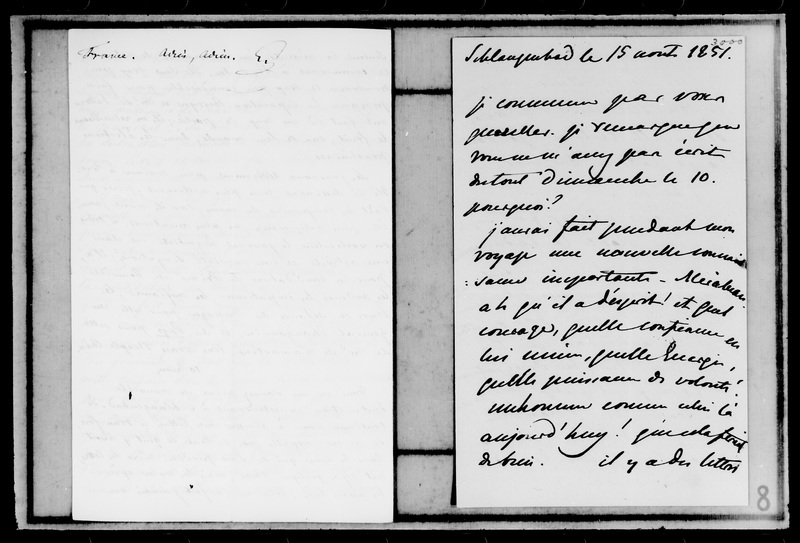 France. Adieu, adieu. G.
2000
Schlangenbad le 15 aout 1851.
je commence par vous
quereller. je remarque que
vous ne m'avez pas écrit
du tout Dimanche le 10.
pourquoi?
j'aurai fait pendant mon
voyage une nouvelle connais
:sance importante - Mirabeau
ah qu'il a d'esprit! et quel
courage, quelle confiance en
lui même, quelle Energie,
quelle puissance de volonté!
un homme comme celui là
aujourd'huy! que cela ferait
de bien. il y a des lettres
8